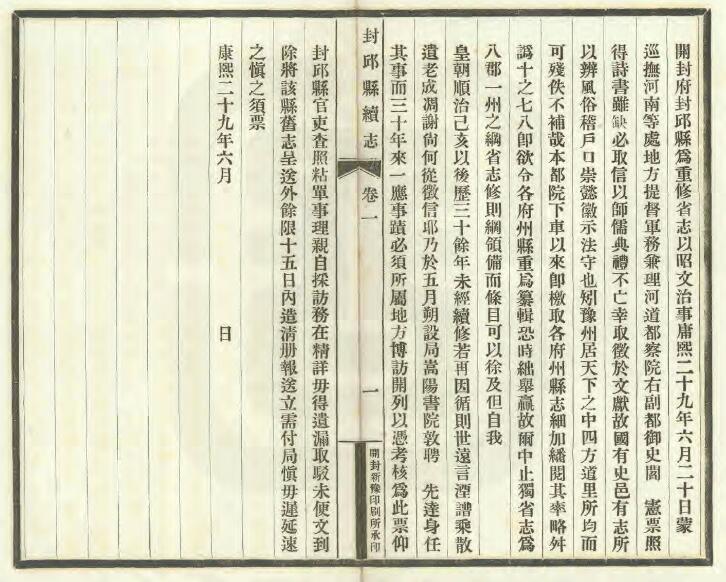 開封府封邱縣爲重修省志以昭文治事康熙二十九年六月二十日蒙
巡撫河南等處地方提督軍務兼理河道都察院右副都御史閻　憲票照
得詩書雖缺必取信以師儒典禮不亡幸取徵於文獻故國有史邑有志所
以辨風俗稽戶口崇懿徽示法守也矧豫州居天下之中四方道里所均而
可殘佚不補哉本都院下車以來卽檄取各府州縣志細加繙閱其率略舛
譌十之七八卽欲令各府州縣重爲纂輯恐時絀舉贏故爾中止獨省志爲
八郡一州之綱省志修則綱領備而條目可以徐及但自我
皇朝順治己亥以後歷三十餘年未經續修若再因循則世遠言湮譜乘散
遺老成凋謝尙何從徵信耶乃於五月朔設局嵩陽書院敦聘　先達身任
其事而三十年來一應事蹟必須所屬地方博訪開列以憑考核爲此票仰
封邱縣續志
卷一
一
開封新豫印刷所承印
封邱縣官吏査照粘單事理親自採訪務在精詳毋得遺漏取駁未便文到
除將該縣舊志呈送外餘限十五日內造淸册報送立需付局愼毋遲延速
之愼之須票
康熙二十九年六月　　日